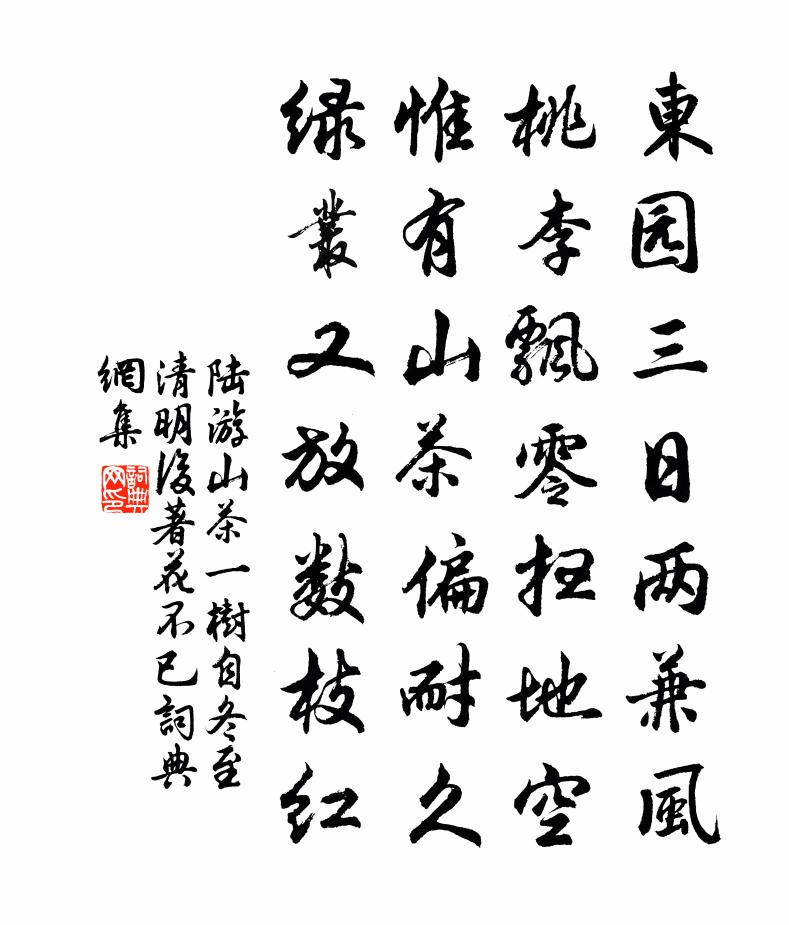 東园三日两兼風
桃李飄零扫地空
惟有山茶偏耐久
绿叢又放数枝红
陆游山茶一樹自冬至
清明後著花不已詞典
網集
詞典
网印